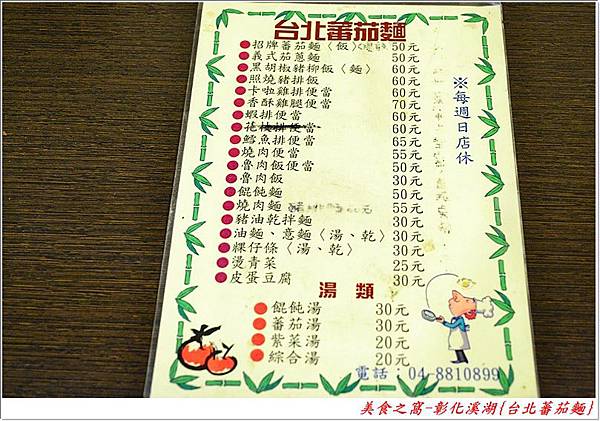 台北蕃茄麵
招牌蕃茄麵〈飯〉 50元
義式茄蔥麵 50元
黑胡椒豬柳飯〈麵〉 60元
照燒豬排飯 60元
卡啦雞排便當 60元
香酥雞腿便當 70元
蝦排便當 60元
花枝排便當 60元
鱈魚排便當 65元
燒肉便當 55元
魯肉飯便當 50元
魯肉飯 30元
餛飩麵 50元
燒肉麵 55元
豬油乾拌麵 30元
油麵、意麵〈湯、乾〉 30元
粿仔條〈湯、乾〉 30元
燙青菜 25元
皮蛋豆腐 30元
※每週日店休
湯類
餛飩湯 30元
蕃茄湯 30元
紫菜湯 20元
綜合湯 20元
電話：04-8810899
美食之窩-彰化溪湖{台北蕃茄麵}